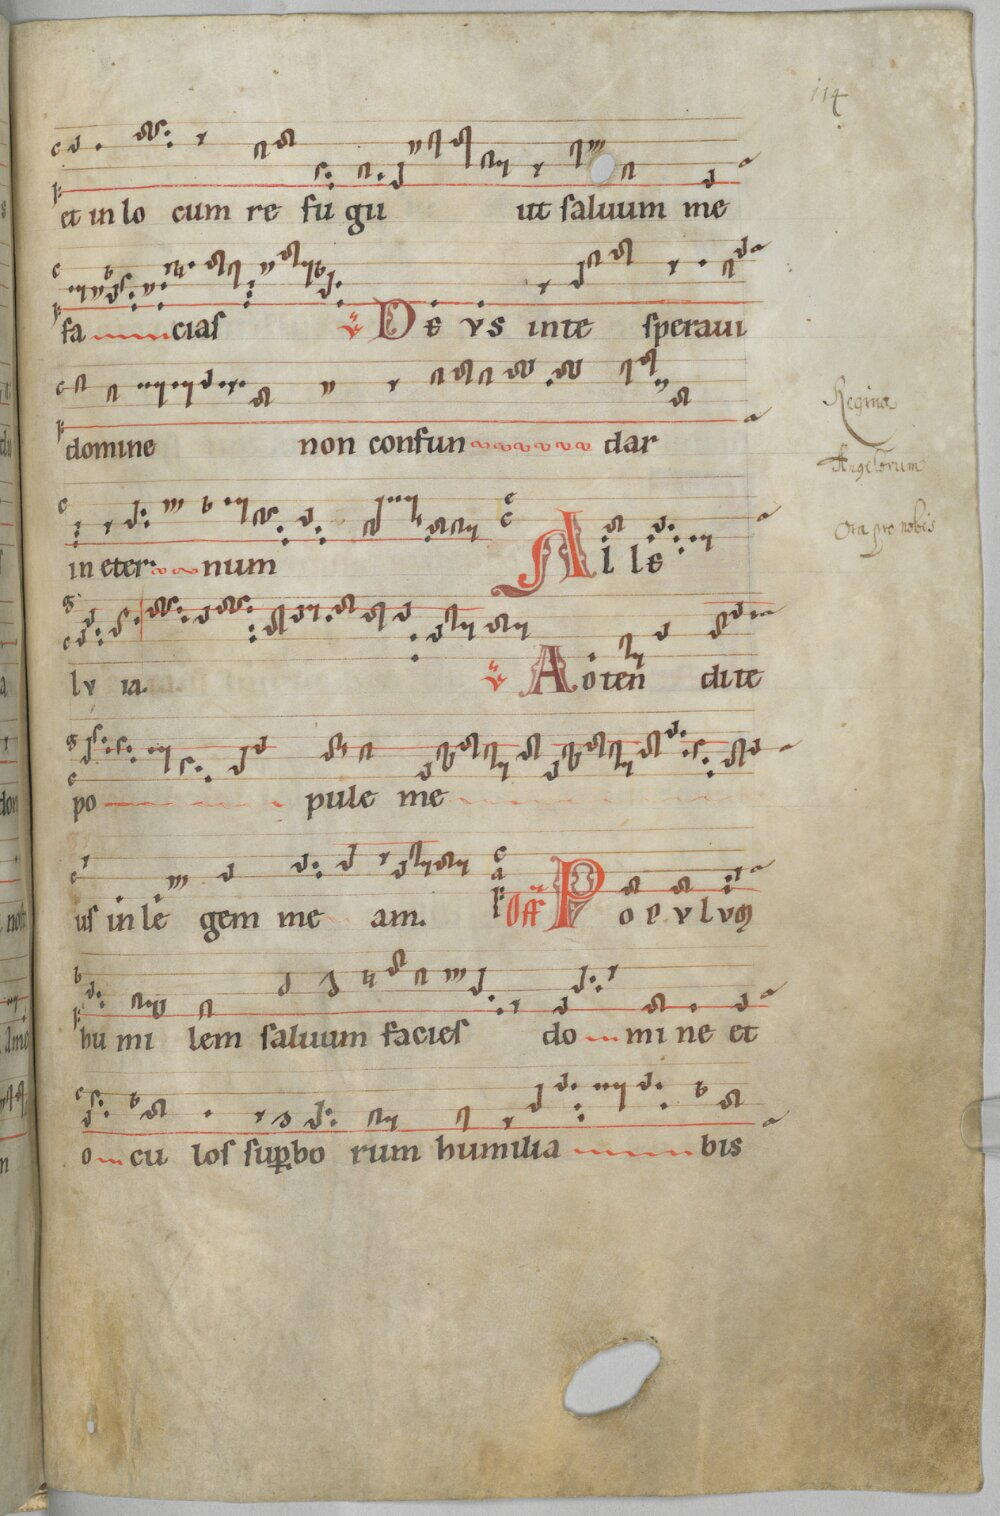 114
et in lo cum re fu gu ut saluum me
fa cias ℣ DE VS inte speraui
domine non confun dar
in eter num Al le
lv ia. ℣ Aoten dite
po pule me
us in le gem me am. Off POPVLVM
hu mi lem saluum facies do mi ne et
o cu los sup̱bo rum humilia bis
Regina
Angelorum
Ora pro nobis